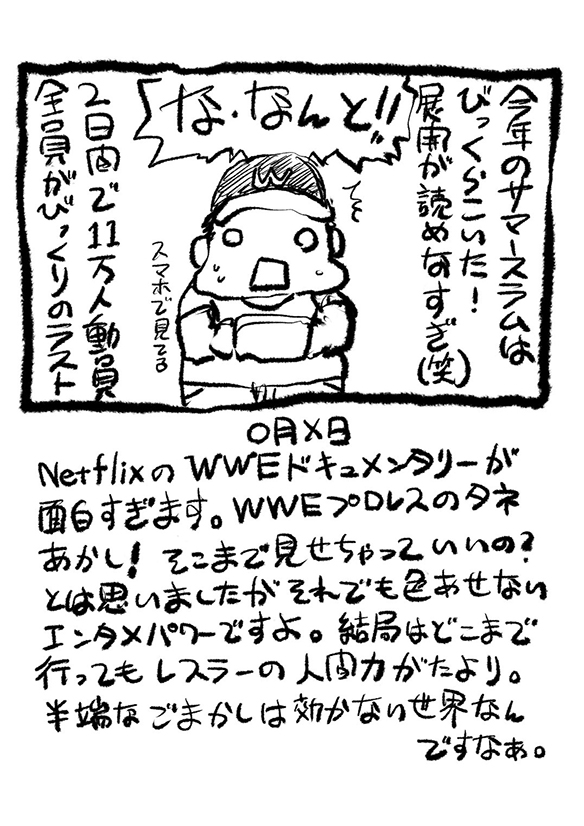 今年のサマースラムは
びっくらこいた!
展開が読めなすぎ(笑)
な・なんと!!
てを
スマホで見てる
2日間で11万人動員
全員がびっくりのラスト
〇月×日
NetflixのWWEドキュメンタリーが
面白すぎます。WWEプロレスのタネ
あかし!そこまで見せちゃっていいの?
とは思いましたがそれでも色あせない
エンタメパワーですよ。結局はどこまで
行ってもレスラーの人間力がたより。
半端なごまかしは効かない世界なん
ですなぁ。